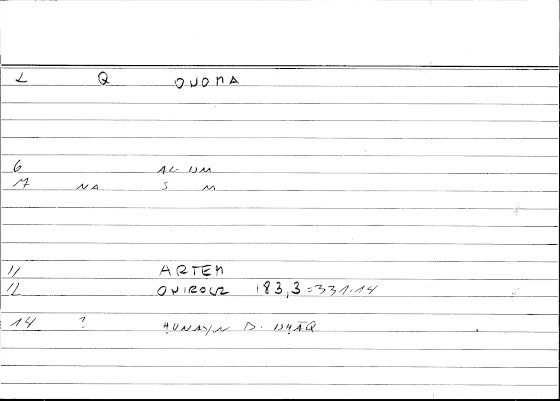 L Q ONOMA
6 AL-UM
M NA S M
11 ARTEM
12 ONIROCR 183,3=331.14
14 ? ḤUNAYN B. ISḤĀQ